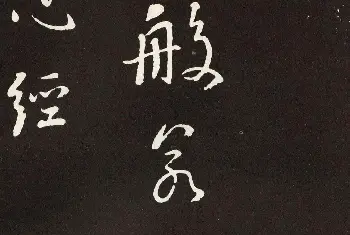 般若
心經